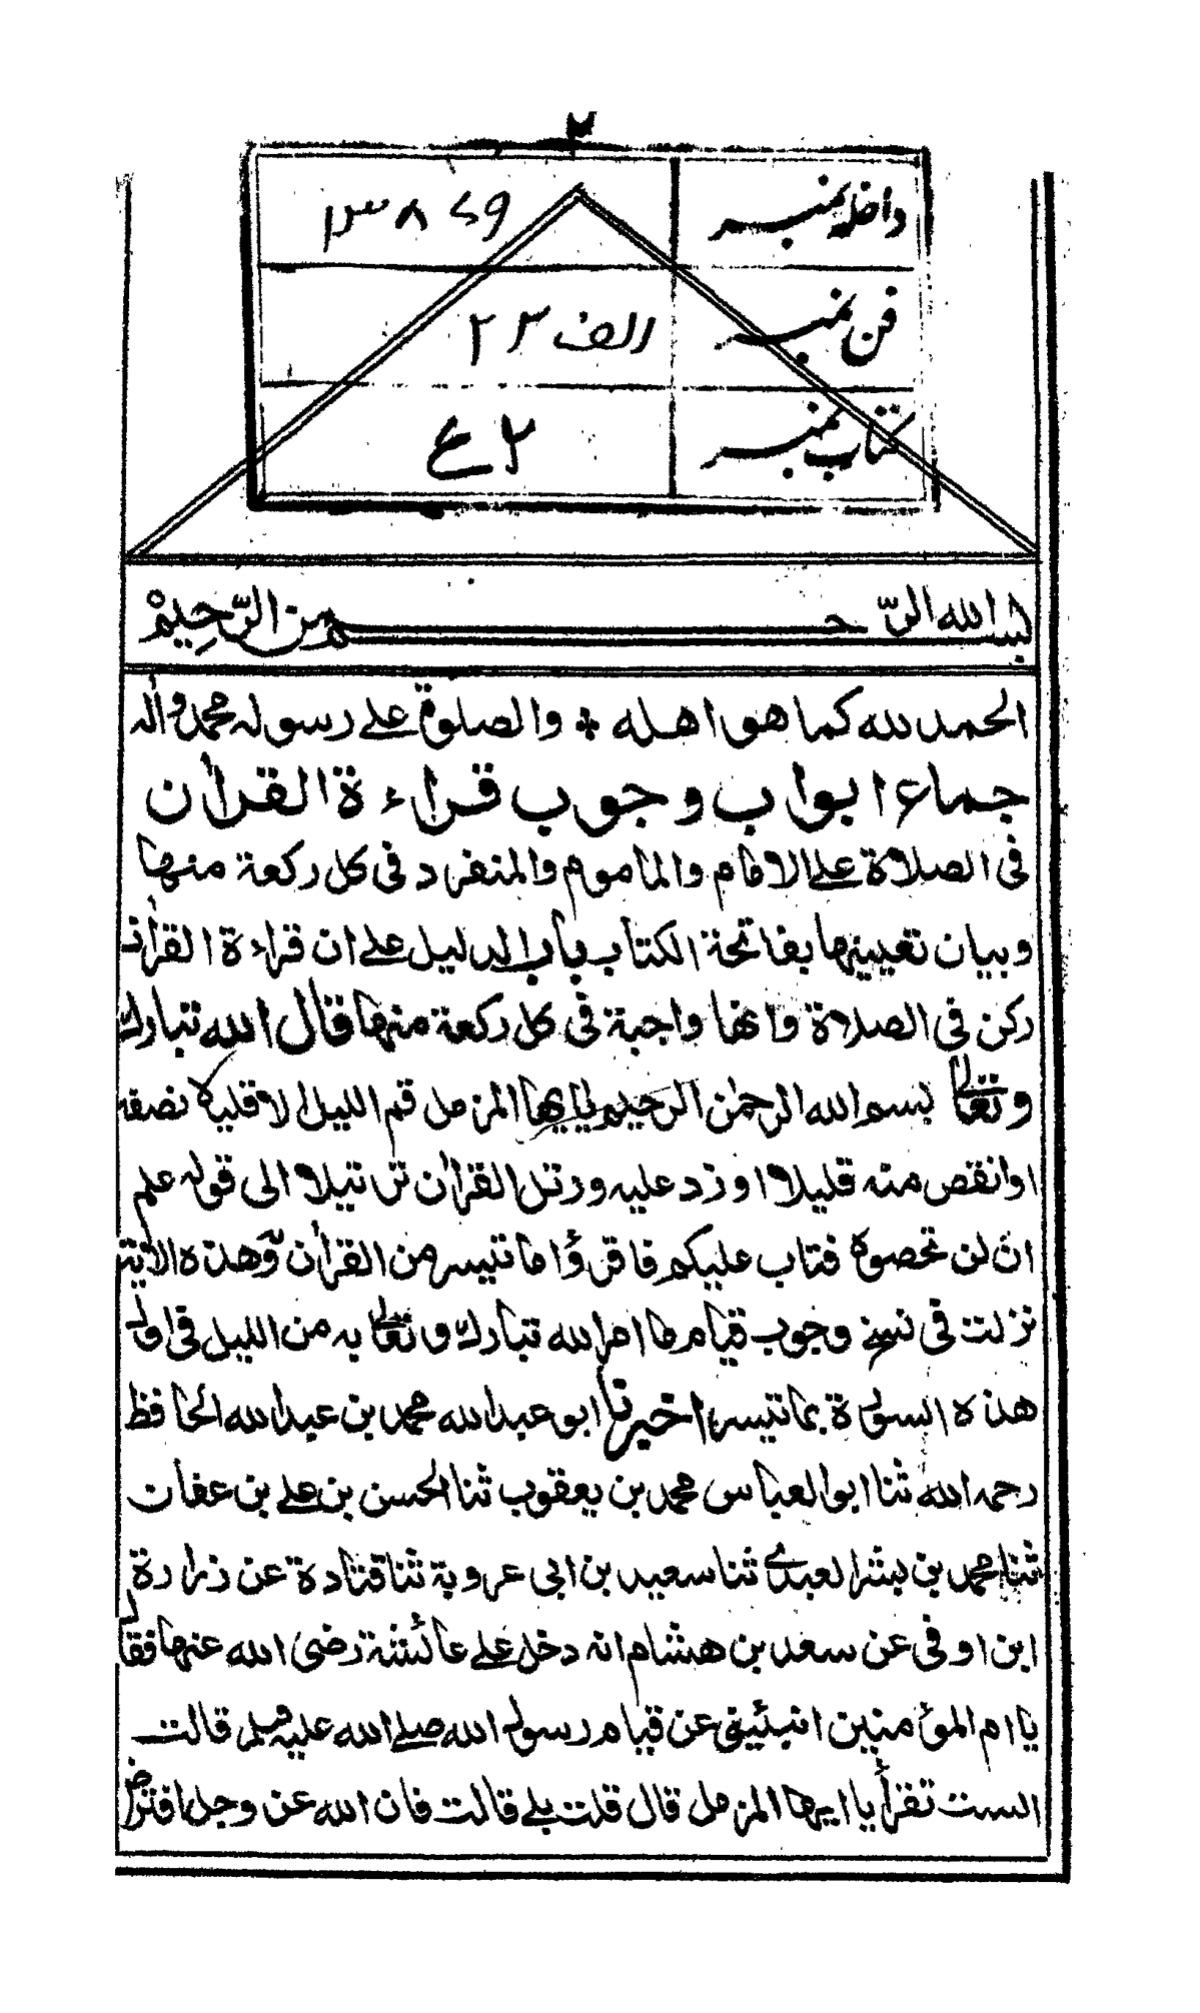 ٢
داخله نمبر ١٣٨٤٩
فن نمبر الف ٢٢
كتاب نمبر
بسم الله الرّحمن الرّحيم
الحمد لله كما هو اهله * والصلوة على رسوله محمد واٰله
جماع ابواب وجوب قراءة القراٰن
فى الصلاة على الامام والماموم والمنفرد فى كل ركعة منها
وبيان تعيينها بفاتحة الكتاب باب الدليل على ان قراءة القراٰن
ركن فى الصلاة وانها واجبة فى كل ركعة منها قال الله تبارك
وتعالى بسم الله الرحمٰن الرحيم يا يها المزمل قم الليل الا قليلا نصفه
او انقص منه قليلا او زد عليه ورتل القراٰن ترتيلا الى قوله علم
ان لن تحصوه فتاب عليكم فاقرؤا ما تيسر من القراٰن وهذه الاٰية
نزلت فى نسخ وجوب قيام ما امر الله تبارك وتعالى به من الليل فى اول
هذه السورة بما تيسر اخبرنا ابو عبد الله محمد بن عبد الله الحافظ
رحمه الله ثنا ابو العباس محمد بن يعقوب ثنا الحسن بن على بن عفان
ثنا محمد بن بشر العبدى ثنا سعيد بن ابى عروبة ثنا قتادة عن زرارة
ابن اوفى عن سعد بن هشام انه دخل على عائشة رضى الله عنها فقال
يا ام المؤمنين انبئينى عن قيام رسول الله صلى الله عليه وسلم قالت
الست تقرأ يا ايها المزمل قال قلت بلى قالت فان الله عز وجل افترض